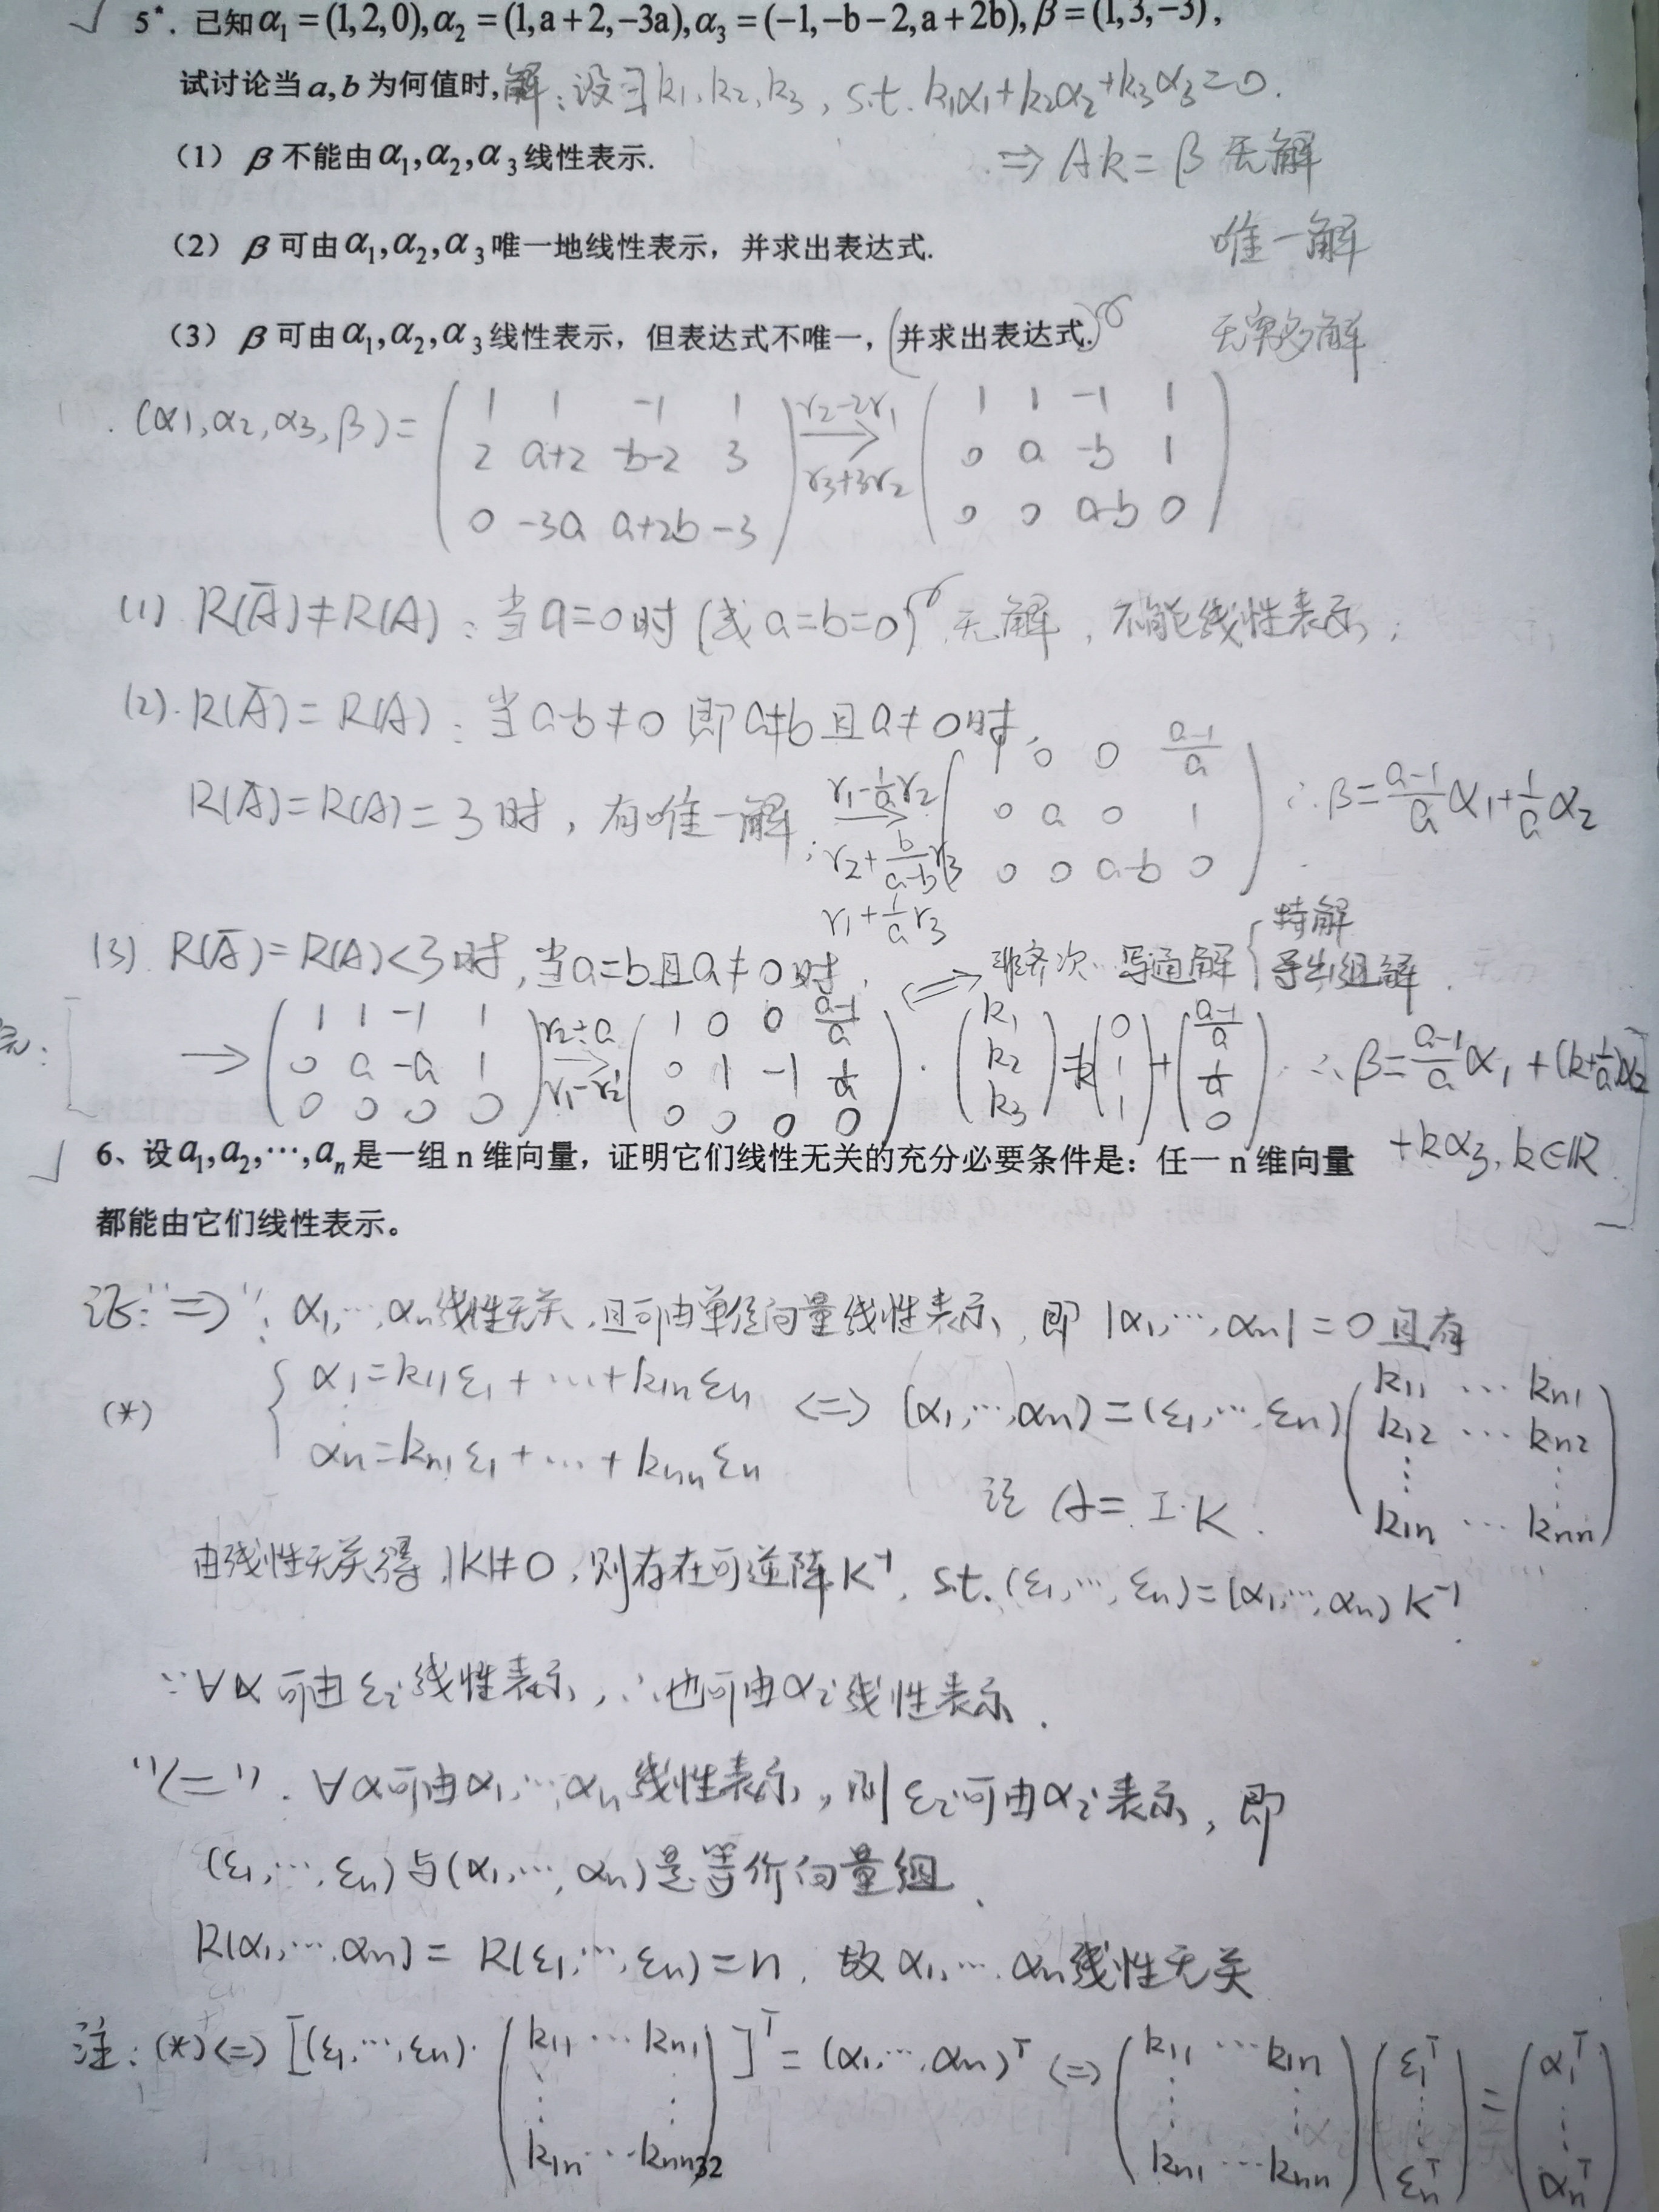 5*. 已知α₁=(1,2,0),α₂=(1,a+2,-3a),α₃=(-1,-b-2,a+2b),β=(1,3,-3),
试讨论当a,b为何值时, 解:设∃k₁,k₂,k₃, s.t. k₁α₁+k₂α₂+k₃α₃=0.
(1) β不能由α₁,α₂,α₃线性表示. ⇒ Ak=β 无解
(2) β可由α₁,α₂,α₃唯一地线性表示，并求出表达式. 唯一解
(3) β可由α₁,α₂,α₃线性表示，但表达式不唯一，(并求出表达式.) 无穷多解
(α₁,α₂,α₃,β)= (1 1 -1 1; 2 a+2 -b-2 3; 0 -3a a+2b -3) r₂-2r₁ → r₃+3r₂ (1 1 -1 1; 0 a -b 1; 0 0 a-b 0)
(1) R(Ā)≠R(A): 当a=0时(或a=b=0) 无解, 不能线性表示;
(2). R(Ā)=R(A): 当a-b≠0 即a≠b且a≠0时,
R(Ā)=R(A)=3时, 有唯一解; r₁-1/a r₂ → r₂+ r₃ r₁+1/a r₃ (1 0 0 a-1/a; 0 a 0 1; 0 0 a-b 0) ∴β=a-1/a α₁+1/a α₂
(3). R(Ā)=R(A)<3时,当a=b且a≠0时, ⇐⇒ 非齐次 写通解 { 特解 导出组解.
→ (1 1 -1 1; 0 a -a 1; 0 0 0 0) r₂÷a → r₁-r₂ (1 0 0 a-1/a; 0 1 -1 1/a; 0 0 0 0). (k₁ k₂ k₃)=k(0 1 1)+(a-1/a 1/a 0). ∴β=a-1/a α₁+(k+1/a)α₂
+kα₃, k∈R.
6、设a₁,a₂,⋯,aₙ是一组n维向量，证明它们线性无关的充分必要条件是：任一n维向量
都能由它们线性表示。
证:"⇒": α₁,⋯,αₙ线性无关,且可由单位向量线性表示, 即|α₁,⋯,αₙ|=0且有
(*) { α₁=k₁₁ε₁+⋯+k₁ₙεₙ ⋮ αₙ=kₙ₁ε₁+⋯+kₙₙεₙ ⇔ (α₁,⋯,αₙ)=(ε₁,⋯,εₙ)(k₁₁ ⋯ kₙ₁; k₁₂ ⋯ kₙ₂; ⋮ ⋮; k₁ₙ ⋯ kₙₙ)
记 A=I·K.
由线性无关得,|K|≠0,则存在可逆阵K⁻¹, s.t. (ε₁,⋯,εₙ)=(α₁,⋯,αₙ)K⁻¹.
∵∀α可由εᵢ线性表示,∴也可由αᵢ线性表示.
"⇐". ∀α可由α₁,⋯,αₙ线性表示,则εᵢ可由αᵢ表示, 即
(ε₁,⋯,εₙ)与(α₁,⋯,αₙ)是等价向量组,
R(α₁,⋯,αₙ)=R(ε₁,⋯,εₙ)=n. 故α₁,⋯,αₙ线性无关
注: (*)⇔[(ε₁,⋯,εₙ)·(k₁₁ ⋯ kₙ₁; ⋮ ⋮; k₁ₙ ⋯ kₙₙ)]ᵀ=(α₁,⋯,αₙ)ᵀ ⇔ (k₁₁ ⋯ k₁ₙ; ⋮ ⋮; kₙ₁ ⋯ kₙₙ)(ε₁ᵀ ⋮ εₙᵀ)=(α₁ᵀ ⋮ αₙᵀ)
32